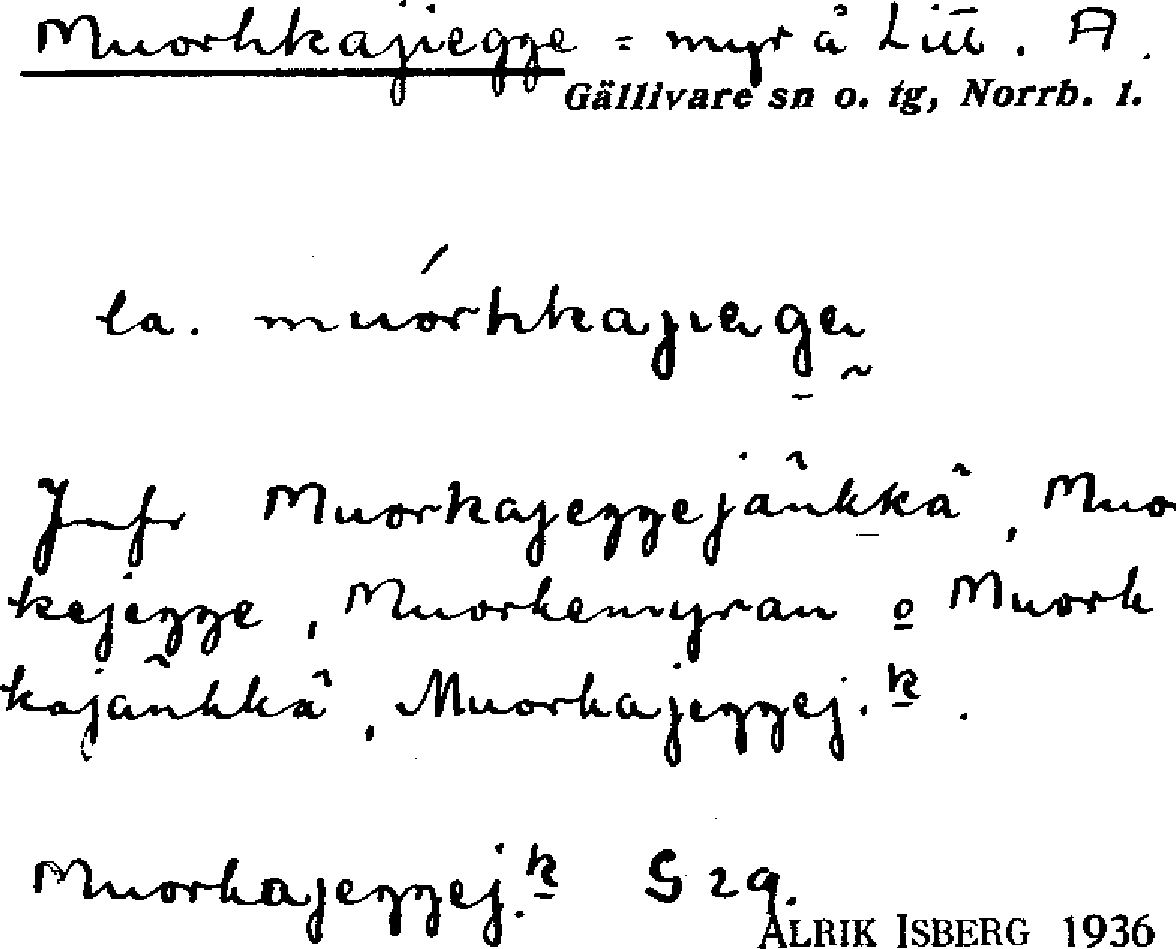 Muorhkajiegge = myr å Litt. A.
Gällivare sn o. tg, Norrb. l.
la. muórhkajiegge
Jmfr Muorkajeggejänkkä, Muo
kejegge, Muorkemyran o Muork
kajänkkä, Muorkajeggej. k.
Muorkajeggej. k S 29.
ALRIK ISBERG 1936